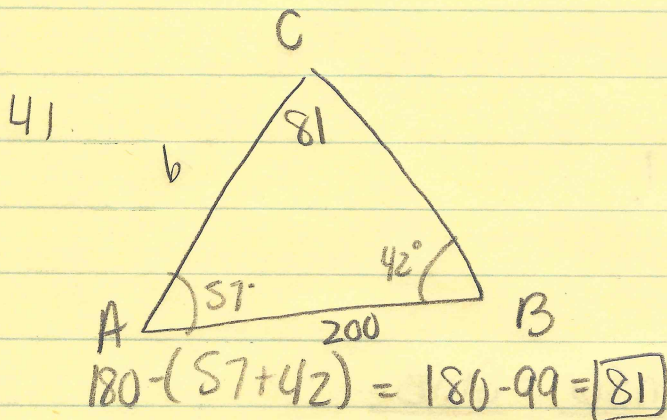 C
41.
81
b
42°
57°
A
200
B
180-(57+42) = 180-99=81